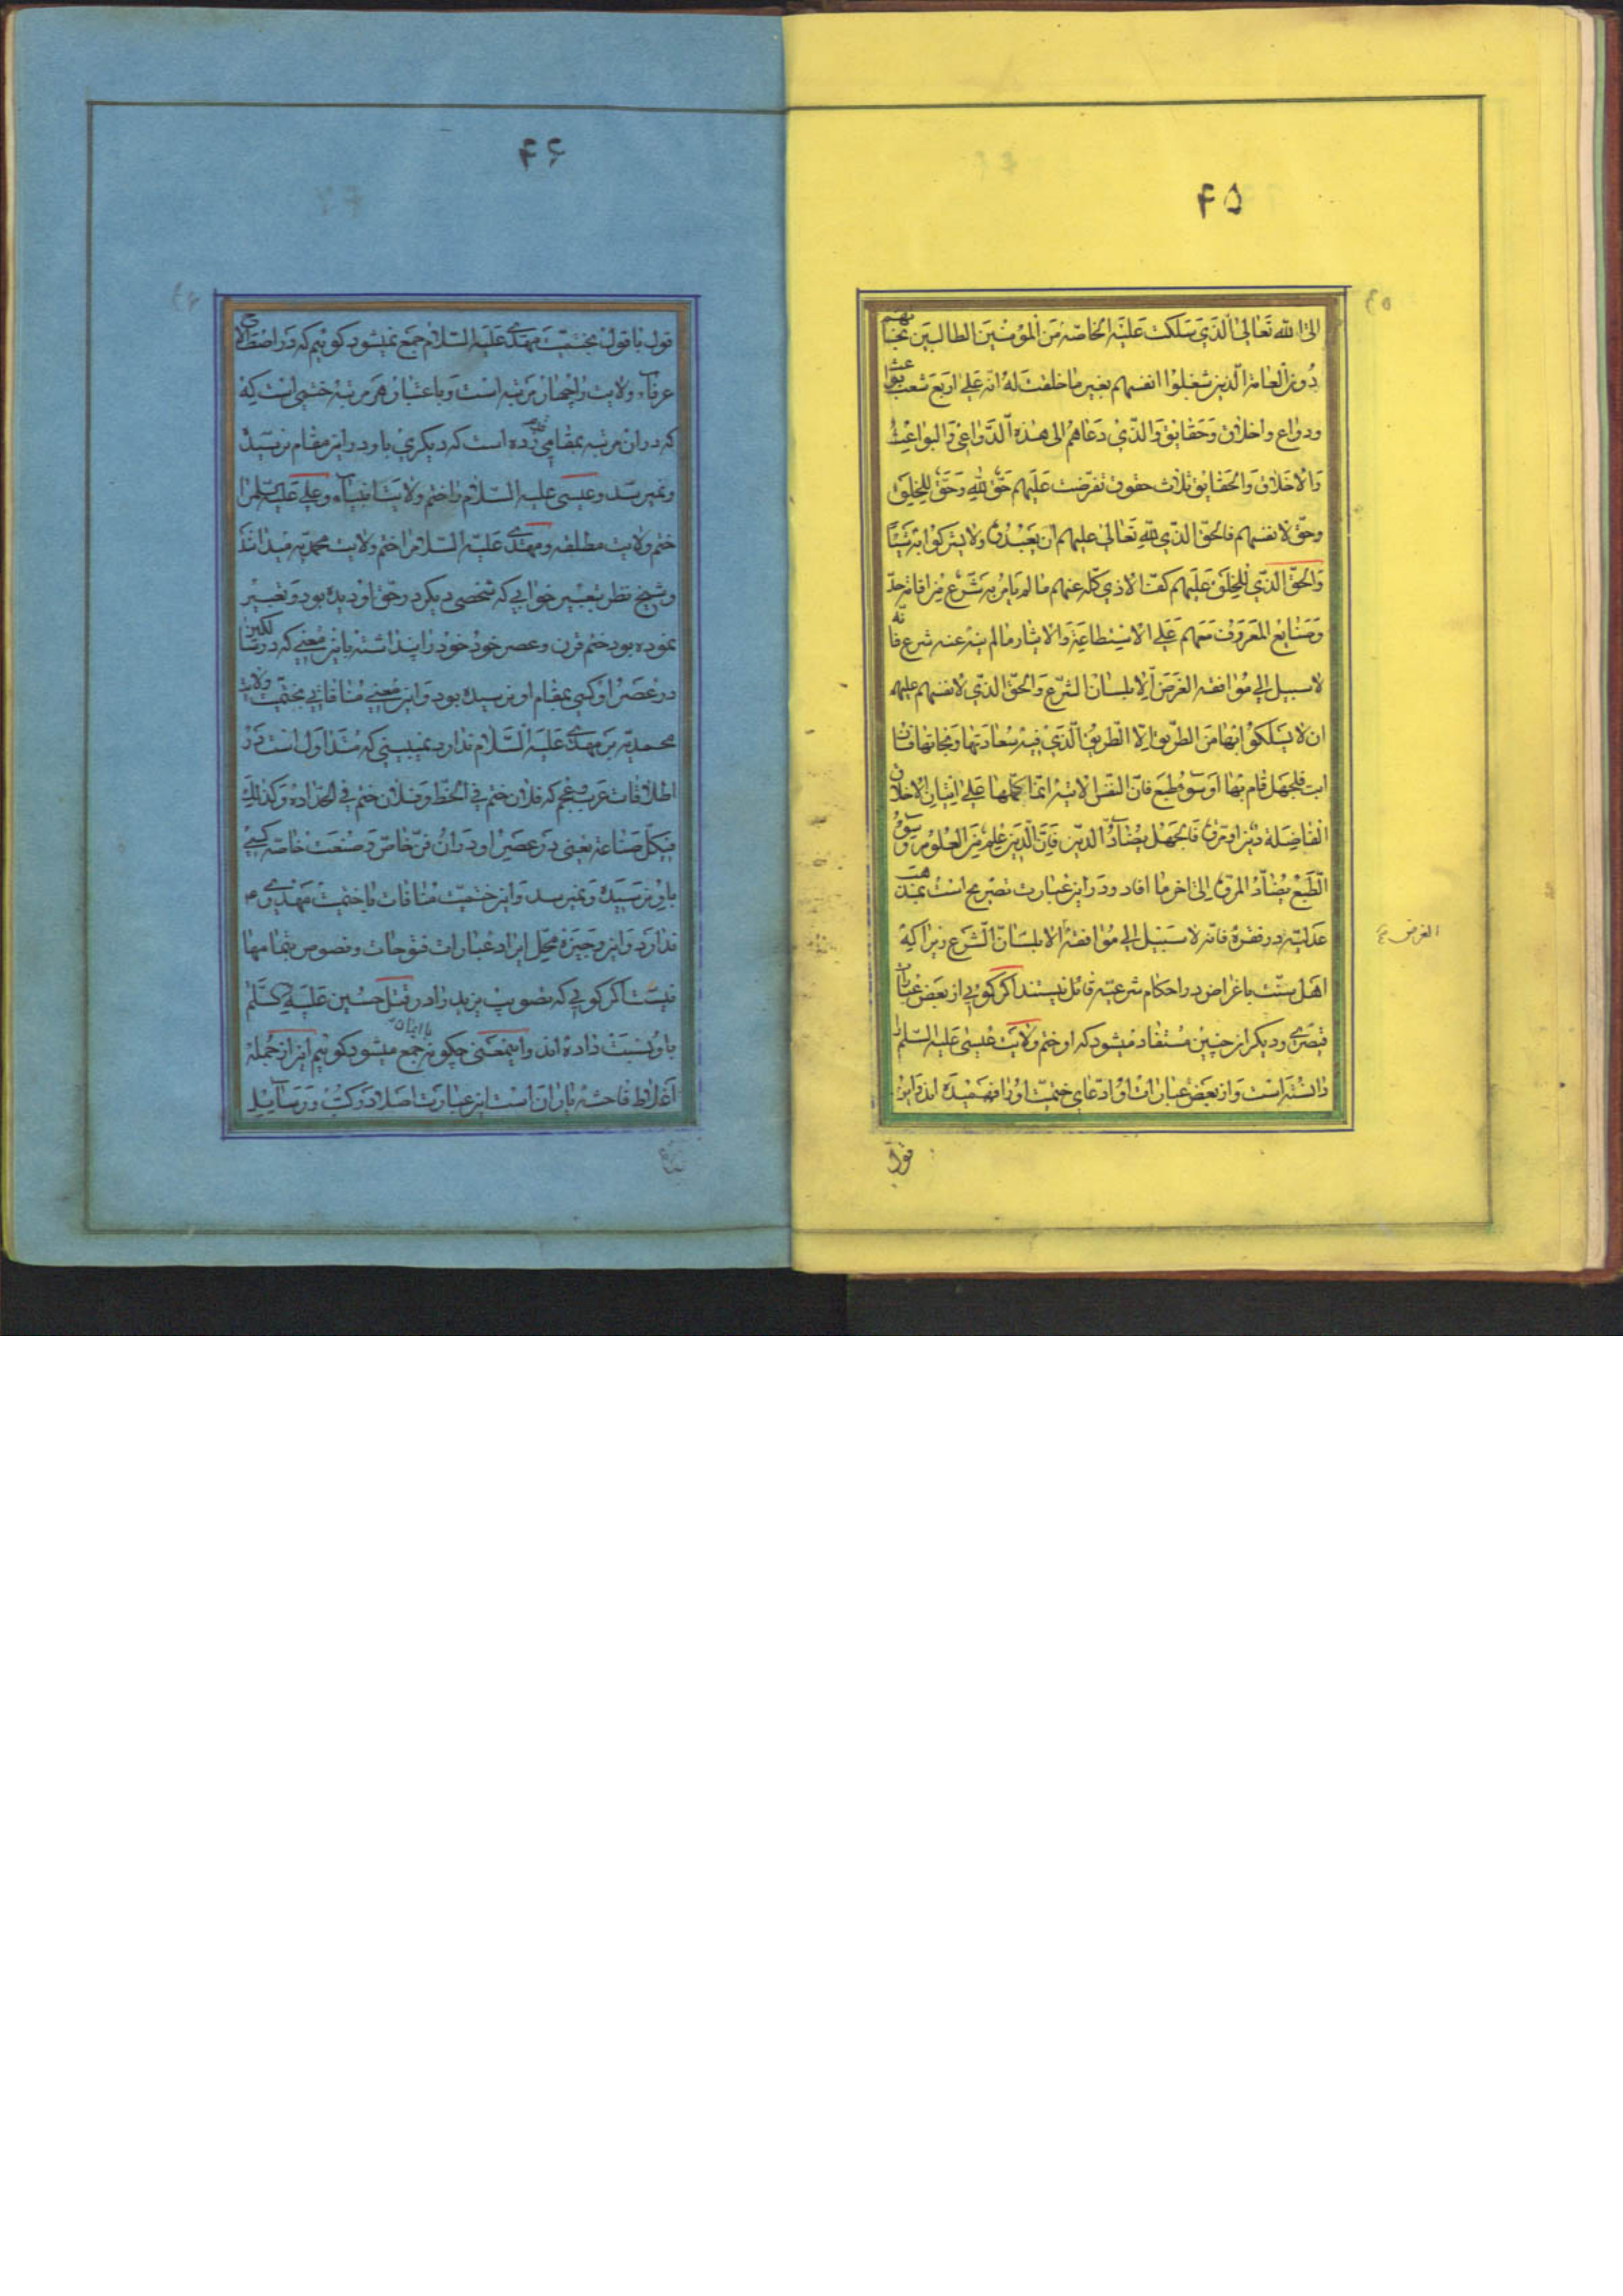 ۴۵
الی الله تعالی الذی سلکت علیه الخاصه من المومنین الطالبین نجاتهم
دون العامة الذین شغلوا انفسهم بغیر ما خلقت له انه علی اربع شعب بواعث
ودواع واخلاق وحقایق والذی دعاهم الی هذه الدواعی والبواعث
والاخلاق والحقایق ثلاث حقوق تفرضت علیهم حق لله وحق للخلق
وحق لانفسهم فالحق الذی لله تعالی علیهم ان یعبدوه ولا یشرکوا به شیئا
والحق الذی للخلق علیهم کف الاذی کله عنهم ما لم یامر به شرع من اقامة حد
وصنایع المعروف معهم علی الاستطاعة والایثار ما لم ینه عنه شرع فانه
لا سبیل الی موافقه الغرض الا بلسان الشرع والحق الذی لانفسهم علیهم
ان لا یسلکوا بها من الطریق الا الطریق الذی فیه سعادتها ونجاتها فان
ابت فلجهل قام بها او سوء طبع فان النفس الابیه انما یحملها علی اتیان الاخلاق
الفاضلة دین او مروة فالجهل یضاد الدین فان الدین علم من العلوم وسوء
الطبع یضاد المروة الی اخر ما افاد ودر این عبارت تصریح است بمذهب
عدلیه در فقره فانه لا سبیل الی موافقة الا بلسان الشرع زیرا که
الغرض
اهل سنت باغراض در احکام شرعیه قائل نیستند اگر گویی از بعض عبارات
قیصری ودیگر از چنین مستفاد میشود که او ختم ولایت عیسی علیه السلم را
دانسته است واز بعض عبارات او ادعای ختمیت او را فهمیده اند واین
قول
۴۶
قول با قول بختمیت مهدی علیه السلام جمع نمیشود گوئیم که در اصطلاح
عرفاء ولایت را چهار مرتبه است وباعتبار هر مرتبه ختمی است که
که در ان مرتبه بمقامی رسیده است که دیگری باو در این مقام نرسیده
ونمیرسد وعیسی علیه السلام را ختم ولایت انبیاء وعلی علیه السلم را
ختم ولایت مطلقه ومهدی علیه السلام را ختم ولایت محمدیه میدانند
وشیخ نظر بتعبیر خوابی که شخصی دیگر در حق او دیده بود وتعبیر
نموده بود ختم قرن وعصر خود خود را پنداشته باین معنی که در سالکین
در عصر او کسی بمقام او نرسیده بود واین معنی منافاتی بختمیت ولایت
محمدیه بر مهدی علیه السلام ندارد نمیبینی که متداول است در
اطلاقات عرب وعجم که فلان ختم فی الخط وفلان ختم فی الحداده وکذلک
فی کل صناعة یعنی در عصر او در ان فن خاص وصنعت خاصه کسی
باو نرسیده ونمیرسد واین ختمیت منافات با ختمیت مهدی ع
ندارد واین وجیزه محل ایراد عبارات فتوحات وفصوص بتمامها
نیست اگر گویی که تصویب یزید را در قتل حسین علیه السلم
باو نسبت داده اند واینمعنی چگونه با ایمان جمع میشود گوئیم این از جمله
اغلاط فاحشه یاران است این عبارت اصلا در کتب ورسایل